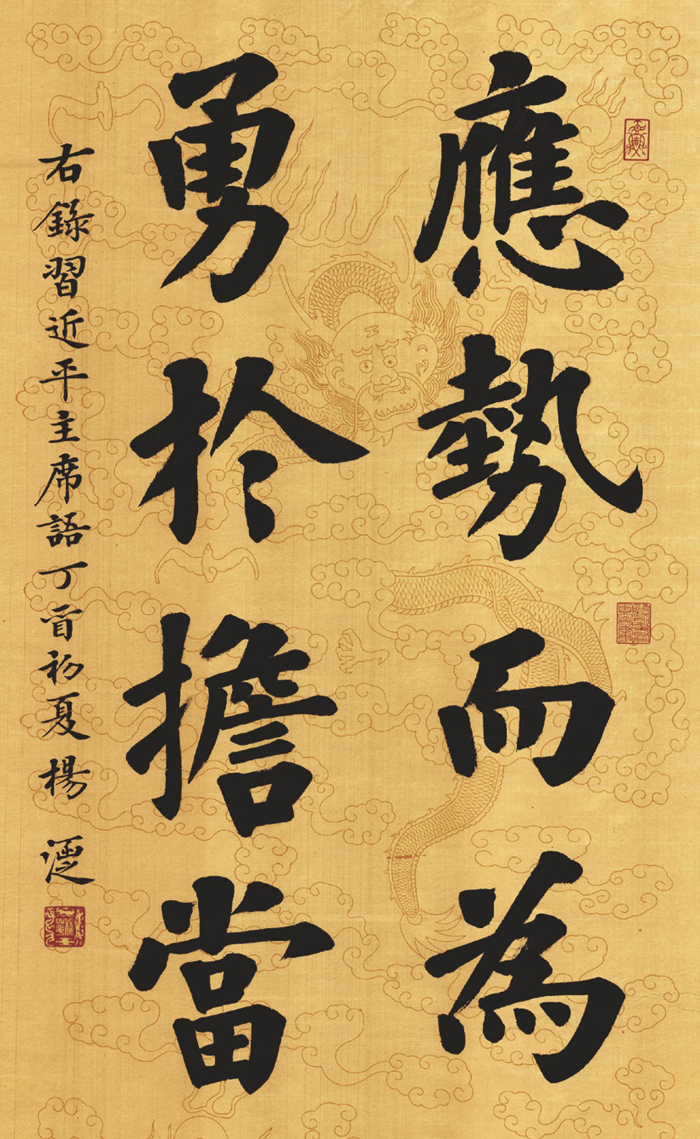 應勢而為
勇於擔當
右錄習近平主席語丁酉初夏楊